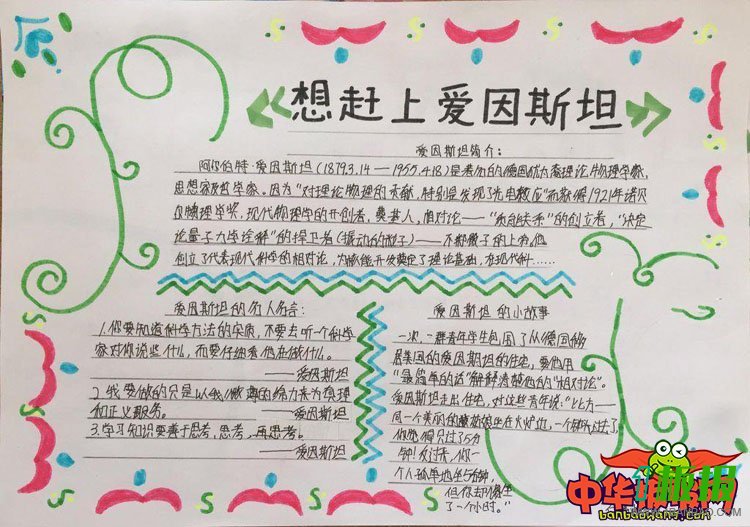 想赶上爱因斯坦
爱因斯坦简介：
阿尔伯特·爱因斯坦（1879.3.14——1955.4.18）是著名的德国犹太裔理论物理学家，
思想家及哲学家。因为“对理论物理的贡献，特别是发现了光电效应”而获得1921年诺贝
尔物理学奖，现代物理学的开创者、奠基人，相对论——“质能关系”的创立者，“决定
论量子力学诠释”的捍卫者（振动的粒子）——不掷骰子的上帝，他
创立了代表现代科学的相对论，为核能开发奠定了理论基础，在现代科……
爱因斯坦的名人名言：
1.你要知道科学方法的实质，不要去听一个科学
家对你说些什么，而要仔细看他在做什么。
——爱因斯坦
2.我要做的只是以我微薄的绵力来为真理
和正义服务。——爱因斯坦
3.学习知识要善于思考，思考，再思考。
——爱因斯坦
爱因斯坦的小故事
一次，一群青年学生包围了从德国移
居美国的爱因斯坦的住宅，要他用
“最简单的话”解释清楚他的“相对论”。
爱因斯坦走出住宅，对这些青年说：“比方——
同一个美丽的姑娘坐在火炉边，一个钟头过去了，
你觉得只过了5分
钟！反过来，你一
个人孤单地坐5分钟，
但你却像坐
了一个小时。”
中华 报网
banbaowang.com